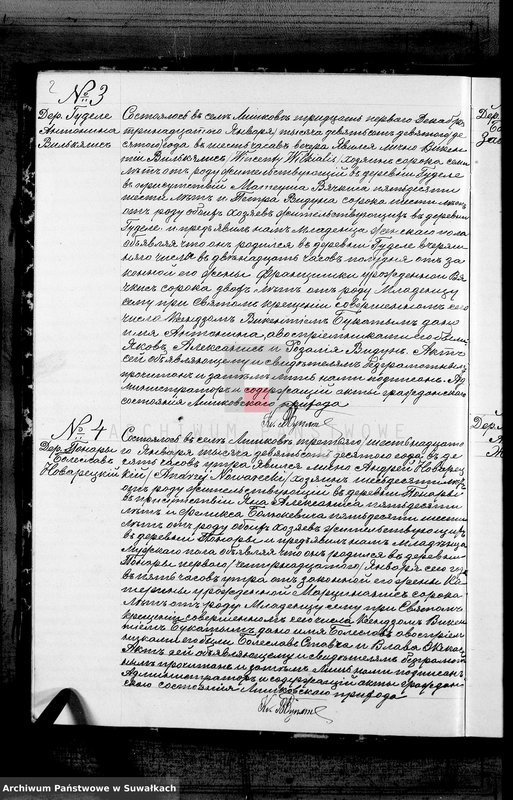 2
№ 3
Дер. Гуделе
Антонина
Вилькялис
Состоялось въ селѣ Лишковѣ тридцать перваго Декабря
тринадцатого Января тысяча девятьсот девятого де
сятого года въ шесть часовъ вечера. Явился лично Викен
тій Вилькялисъ Wincenty Wilkialis, хозяинъ сорока семи
лѣтъ отъ роду жительствующій въ деревни Гуделе
въ присутствіи Матеуша Вячкиса пятьдесяти
шести лѣтъ и Петра Видуна сорока шести лѣтъ
отъ роду обоихъ хозяевъ жительствующихъ въ деревни
Гуделе и предъявилъ намъ младенца женскаго пола
объявляя что онъ родился въ деревни Гуделе вчераш
няго числа въ двѣнадцать часовъ полудня отъ за
конной его жены Францишки урожденной Вя
чкисъ сорока двохъ лѣтъ отъ роду. Младенцу
сему при святомъ крещеніи совершенномъ сего
числа Ксендзомъ Викентіемъ Букатымъ дано
имя Антонина, а воспріемниками его были
Яковъ Александрисъ и Розалія Видунъ. Актъ
сей объявляющему и свидѣтелямъ безграмотнымъ
прочитанъ и затѣмъ нами подписанъ. Ад
министраторъ и содержащій акты гражданскаго
состоянія Лишковскаго прихода
№ 4
Дер. Понары
Болеславъ
Новарецкій
Состоялось въ селѣ Лишковѣ третьяго / шестнадцатого
Января тысяча девятьсот десятого года, въ де
сять часовъ утра. Явился лично Андрей Новарец
кій / Andrzej Nowarecki / хозяинъ шестьдесяти лѣтъ
отъ роду жительствующій въ деревни Понары
въ присутствіи Александриса пятьдесяти
лѣтъ и Феликса пятьдесяти шести
лѣтъ отъ роду обоихъ хозяевъ жительствующихъ
въ деревни Понары и предъявилъ намъ младенца
мужскаго пола объявляя что онъ родился въ деревни
Понары перваго / четырнадцатаго / Января сего года
въ пять часовъ утра отъ законной его жены Ка
тержины урожденной сорока
лѣтъ отъ роду. Младенцу сему при Святомъ
крещеніи совершенномъ сего числа Ксендзомъ Викен
тіемъ Букатымъ дано имя Болеславъ, а воспріем
никами его были Болеславъ и
Актъ сей объявляющему и свидѣтелямъ безграмот
нымъ прочитанъ и затѣмъ нами подписанъ
Администраторъ и содержащій акты граждан
скаго состоянія Лишковскаго прихода
ARCHIWUM PAŃSTWOWE
Archiwum Państwowe w Suwałkach